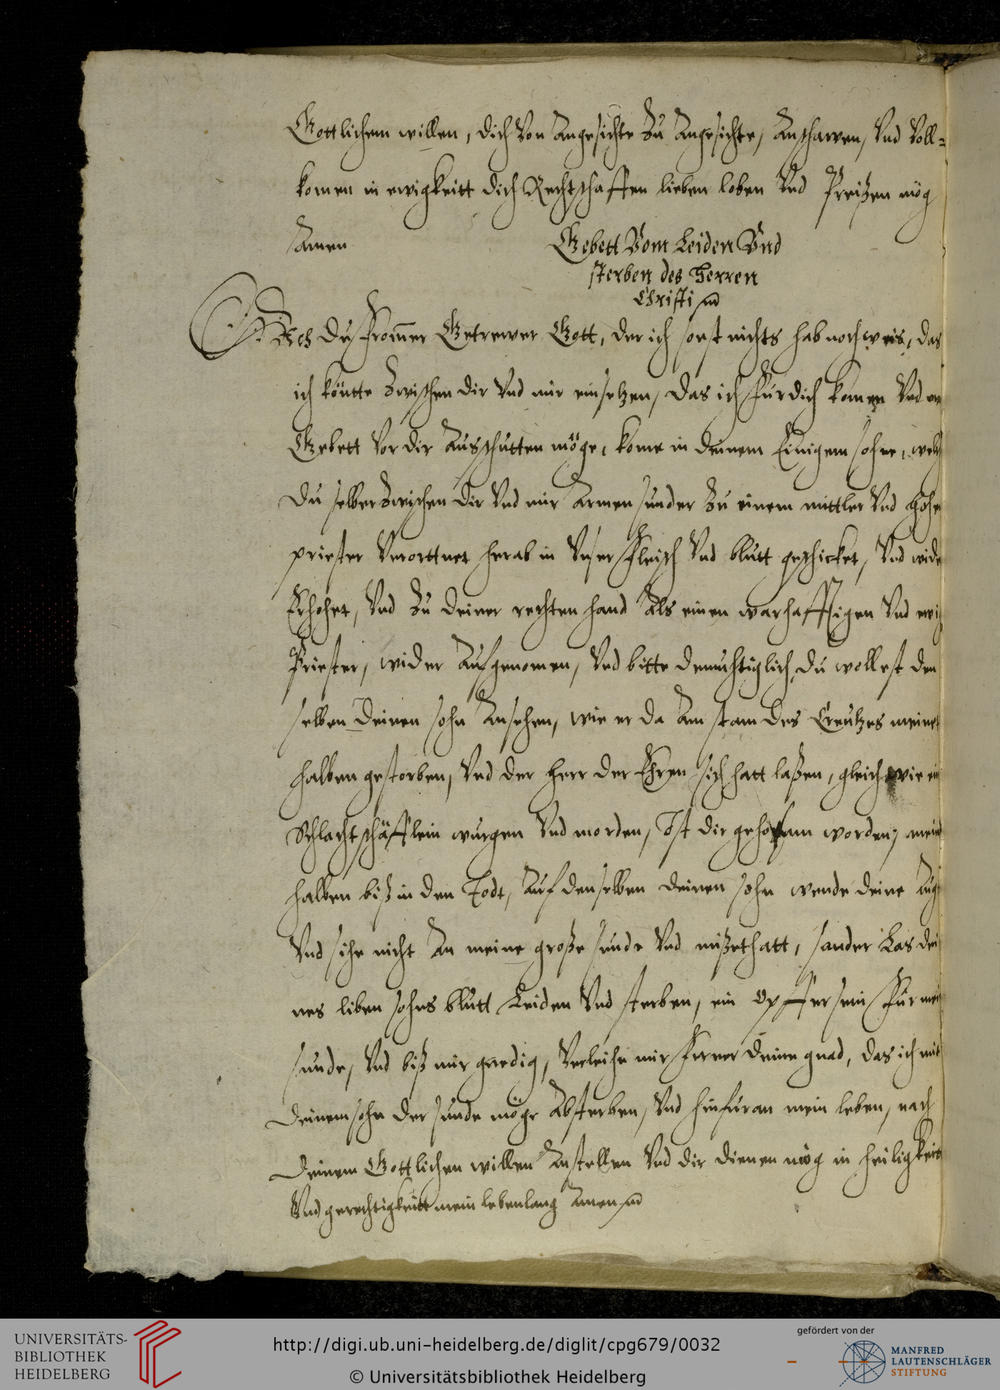 Gottlichem willen, dich Von Angesichte Zu Angesichte, Anschawen, Vnd Voll=
komen in ewigkeitt dich Rechtschaffen lieben loben Vnd Preißen mög
Amen
Gebett Vom Leiden Vnd
sterben des Herren
Christi
Ach Du frommer Getrewer Gott, der ich sonst nichts hab noch weis, das
ich köntte Zwischen dir Vnd mir einsetzen, das ich fur dich komen Vnd
Gebett Vor dir Ausschutten möge, kome in deinem Einigem sohne, welch
Du selber Zwischen dir Vnd mir Armen sunder Zu einem mittler Vnd hohe
priester Verorttnet herab in Vnser fleisch Vnd blutt geschicket, Vnd wide
Erhohet, Vnd Zu deiner rechten hand Als einen warhafftigen Vnd ewig
Priester, wider Aufgenomen, Vnd bitte demuhtiglich, du wollest den
selben deinen sohn Ansehen, wie er da Am stam des Creutzes meinet
halben gestorben, Vnd der herr der Ehren sich hatt laßen, gleich wie ein
Schlachtschäfflein wurgen Vnd morden, Ist dir gehorsam worden, meinet
halben biß in den Todt, Auf denselben deinen sohn wende deine Aug
Vnd sihe nicht An meine große sunde Vnd mißethatt, sonder Las dei
nes liben sohns blutt Leiden Vnd sterben, ein opffer sein fur mein
sunde, Vnd biß mir gnedig, Verleihe mir ferner deine gnad, das ich mit
deinem sohn der sunde möge Absterben, Vnd hinfuran mein leben, nach
deinem Gottlichen willen Anstellen Vnd dir dienen mög in heiligkeit
Vnd gerechtigkeitt mein lebenlang Amen
UNIVERSITÄTS-
BIBLIOTHEK
HEIDELBERG
http://digi.ub.uni-heidelberg.de/diglit/cpg679/0032
© Universitätsbibliothek Heidelberg
gefördert von der
MANFRED
LAUTENSCHLÄGER
STIFTUNG